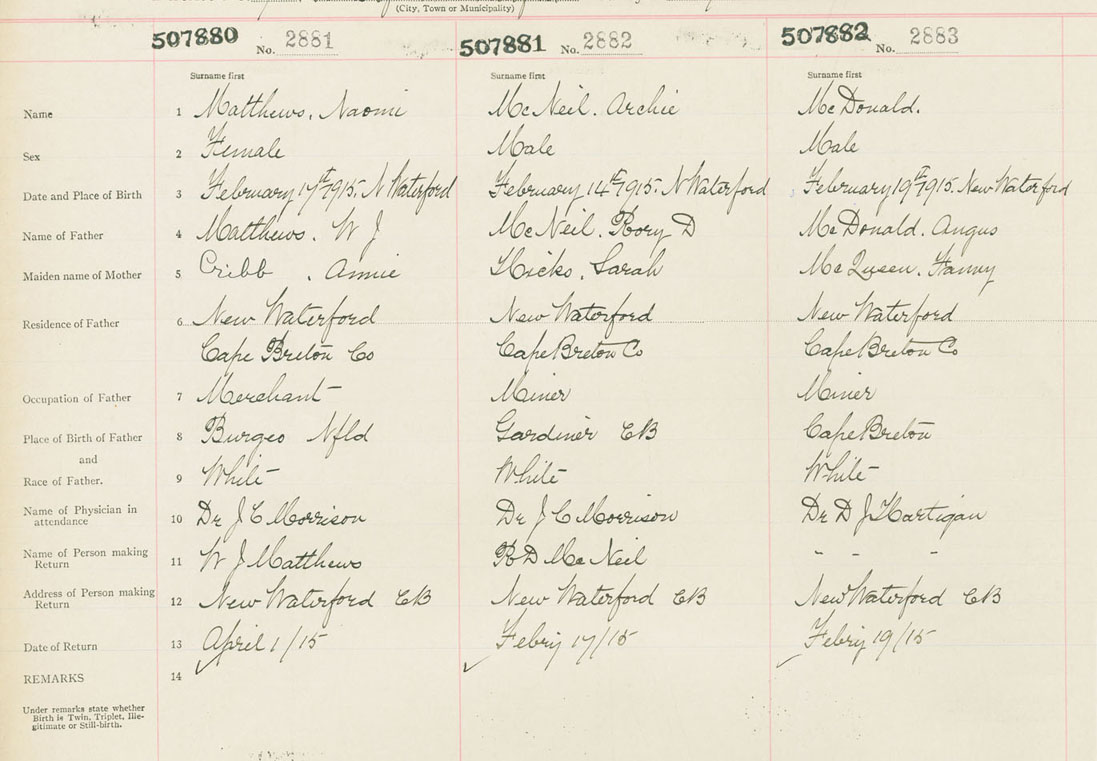 (City, Town or Municipality)
507880 No. 2881 507881 No. 2882 507882 No. 2883
Surname first Surname first Surname first
Name 1 Matthews. Naomi McNeil. Archie McDonald.
Sex 2 Female Male Male
Date and Place of Birth 3 February 17th 1915. N Waterford February 14th 1915. N Waterford February 19th 1915. New Waterford
Name of Father 4 Matthews. W J McNeil. Rory D McDonald. Angus
Maiden name of Mother 5 Cribb . Annie Hicks. Sarah McQueen. Fanny
Residence of Father 6 New Waterford New Waterford New Waterford
Cape Breton Co Cape Breton Co Cape Breton Co
Occupation of Father 7 Merchant Miner Miner
Place of Birth of Father 8 Burgeo Nfld Gardiner CB Cape Breton
and
Race of Father. 9 White White White
Name of Physician in
attendance 10 Dr J C Morrison Dr J C Morrison Dr D J Hartigan
Name of Person making
Return 11 W J Matthews R D McNeil " " "
Address of Person making
Return 12 New Waterford CB New Waterford CB New Waterford CB
Date of Return 13 April 1/15 Febry 17/15 Febry 19/15
REMARKS 14
Under remarks state whether
Birth is Twin, Triplet, Ille-
gitimate or Still-birth.